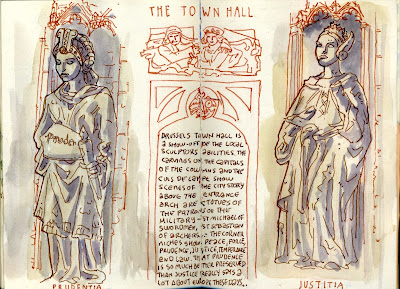 THE TOWN HALL
Prudentia
BRUSSELS TOWN HALL IS
A SHOW-OFF OF THE LOCAL
SCULPTORS ABILITIES. THE
CARVINGS ON THE CAPITALS
OF THE COLUMNS AND THE
CULS DE LAMPE SHOW
SCENES OF THE CITY STORY
ABOVE THE ENTRANCE
ARCH ARE STATUES OF
THE PATRONS OF THE
MILITARY - ST. MICHAEL OF
SWORDMEN, ST SEBASTIAN
OF ARCHERS... THE CORNER
NICHES SHOW PEACE, FORCE,
PRUDENCE, JUSTICE, TEMPERANCE
AND LAW. THAT PRUDENCE
IS SO MUCH BETTER PRESERVED
THAN JUSTICE REALLY SAYS A
LOT ABOUT EUROPE THESE DAYS.
PRUDENTIA
JUSTITIA